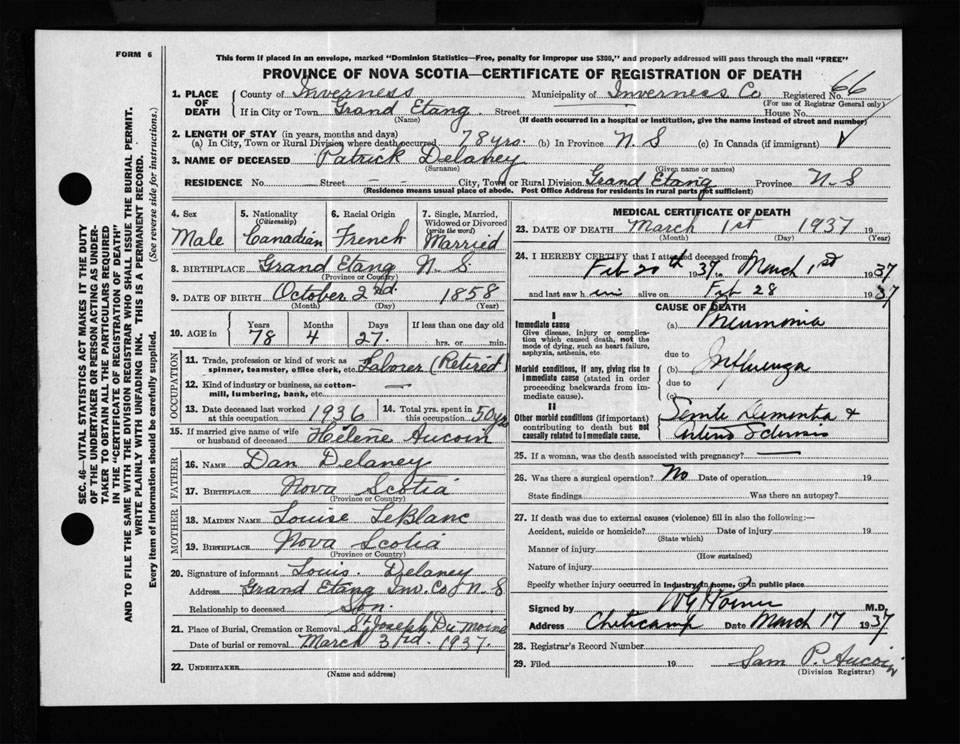 FORM 6
This form if placed in an envelope, marked "Dominion Statistics—Free, penalty for improper use $300," and properly addressed will pass through the mail "FREE"
PROVINCE OF NOVA SCOTIA—CERTIFICATE OF REGISTRATION OF DEATH
1. PLACE OF DEATH
County of Inverness Municipality of Inverness Co Registered No. 66
(For use of Registrar General only)
If in City or Town Grand Etang Street House No.
(Name) (If death occurred in a hospital or institution, give the name instead of street and number)
2. LENGTH OF STAY (in years, months and days)
(a) In City, Town or Rural Division where death occurred 78 yrs. (b) In Province N. S (c) In Canada (if immigrant)
3. NAME OF DECEASED Patrick Delaney
(Surname) (Given name or names)
RESIDENCE No. Street City, Town or Rural Division Grand Etang Province N. S
(Residence means usual place of abode. Post Office Address for residents in rural parts not sufficient)
4. Sex Male
5. Nationality (Citizenship) Canadian
6. Racial Origin French
7. Single, Married, Widowed or Divorced (write the word) Married
8. BIRTHPLACE Grand Etang N. S
(Province or Country)
9. DATE OF BIRTH October 2nd. 1858
(Month) (Day) (Year)
10. AGE in Years Months Days If less than one day old
78 4 27. hrs. or min.
OCCUPATION
11. Trade, profession or kind of work as spinner, teamster, office clerk, etc. Labourer (Retired)
12. Kind of industry or business, as cotton-mill, lumbering, bank, etc. —
13. Date deceased last worked at this occupation 1936
14. Total yrs. spent in this occupation 50 yrs
15. If married give name of wife or husband of deceased Hélène Aucoin
FATHER
16. NAME Dan Delaney
17. BIRTHPLACE Nova Scotia
(Province or Country)
MOTHER
18. MAIDEN NAME Louise LeBlanc
19. BIRTHPLACE Nova Scotia
(Province or Country)
20. Signature of informant Louis Delaney
Address Grand Etang Inv. Co N. S
Relationship to deceased Son.
21. Place of Burial, Cremation or Removal St Joseph Du Moine
Date of burial or removal March 3rd. 1937.
22. UNDERTAKER
(Name and address)
MEDICAL CERTIFICATE OF DEATH
23. DATE OF DEATH March 1st 1937
(Month) (Day) (Year)
24. I HEREBY CERTIFY that I attended deceased from
Feb 20th 1937 to March 1st 1937
and last saw him alive on Feb 28 1937
CAUSE OF DEATH
I
Immediate cause
Give disease, injury or complication which caused death, not the mode of dying, such as heart failure, asphyxia, asthenia, etc.
(a) Pneumonia
due to
Morbid conditions, if any, giving rise to immediate cause (stated in order proceeding backwards from immediate cause).
(b) Influenza
due to
(c)
II
Other morbid conditions (if important) contributing to death but not causally related to immediate cause.
Senile Dementia &
Arterio Sclerosis
25. If a woman, was the death associated with pregnancy? —
26. Was there a surgical operation? No Date of operation 19
State findings Was there an autopsy?
27. If death was due to external causes (violence) fill in also the following:—
Accident, suicide or homicide? Date of injury 19
(State which)
Manner of injury
(How sustained)
Nature of injury
Specify whether injury occurred in industry, in home, or in public place
Signed by M.D.
Address Cheticamp Date March 17 1937
28. Registrar's Record Number
29. Filed 19 Sam P. Aucoin
(Division Registrar)
SEC. 46—VITAL STATISTICS ACT MAKES IT THE DUTY
OF THE UNDERTAKER OR PERSON ACTING AS UNDER-
TAKER TO OBTAIN ALL THE PARTICULARS REQUIRED
IN THE "CERTIFICATE OF REGISTRATION OF DEATH"
AND TO FILE THE SAME WITH THE DIVISION REGISTRAR WHO SHALL ISSUE THE BURIAL PERMIT.
WRITE PLAINLY WITH UNFADING INK. THIS IS A PERMANENT RECORD.
Every item of information should be carefully supplied. (See reverse side for instructions.)